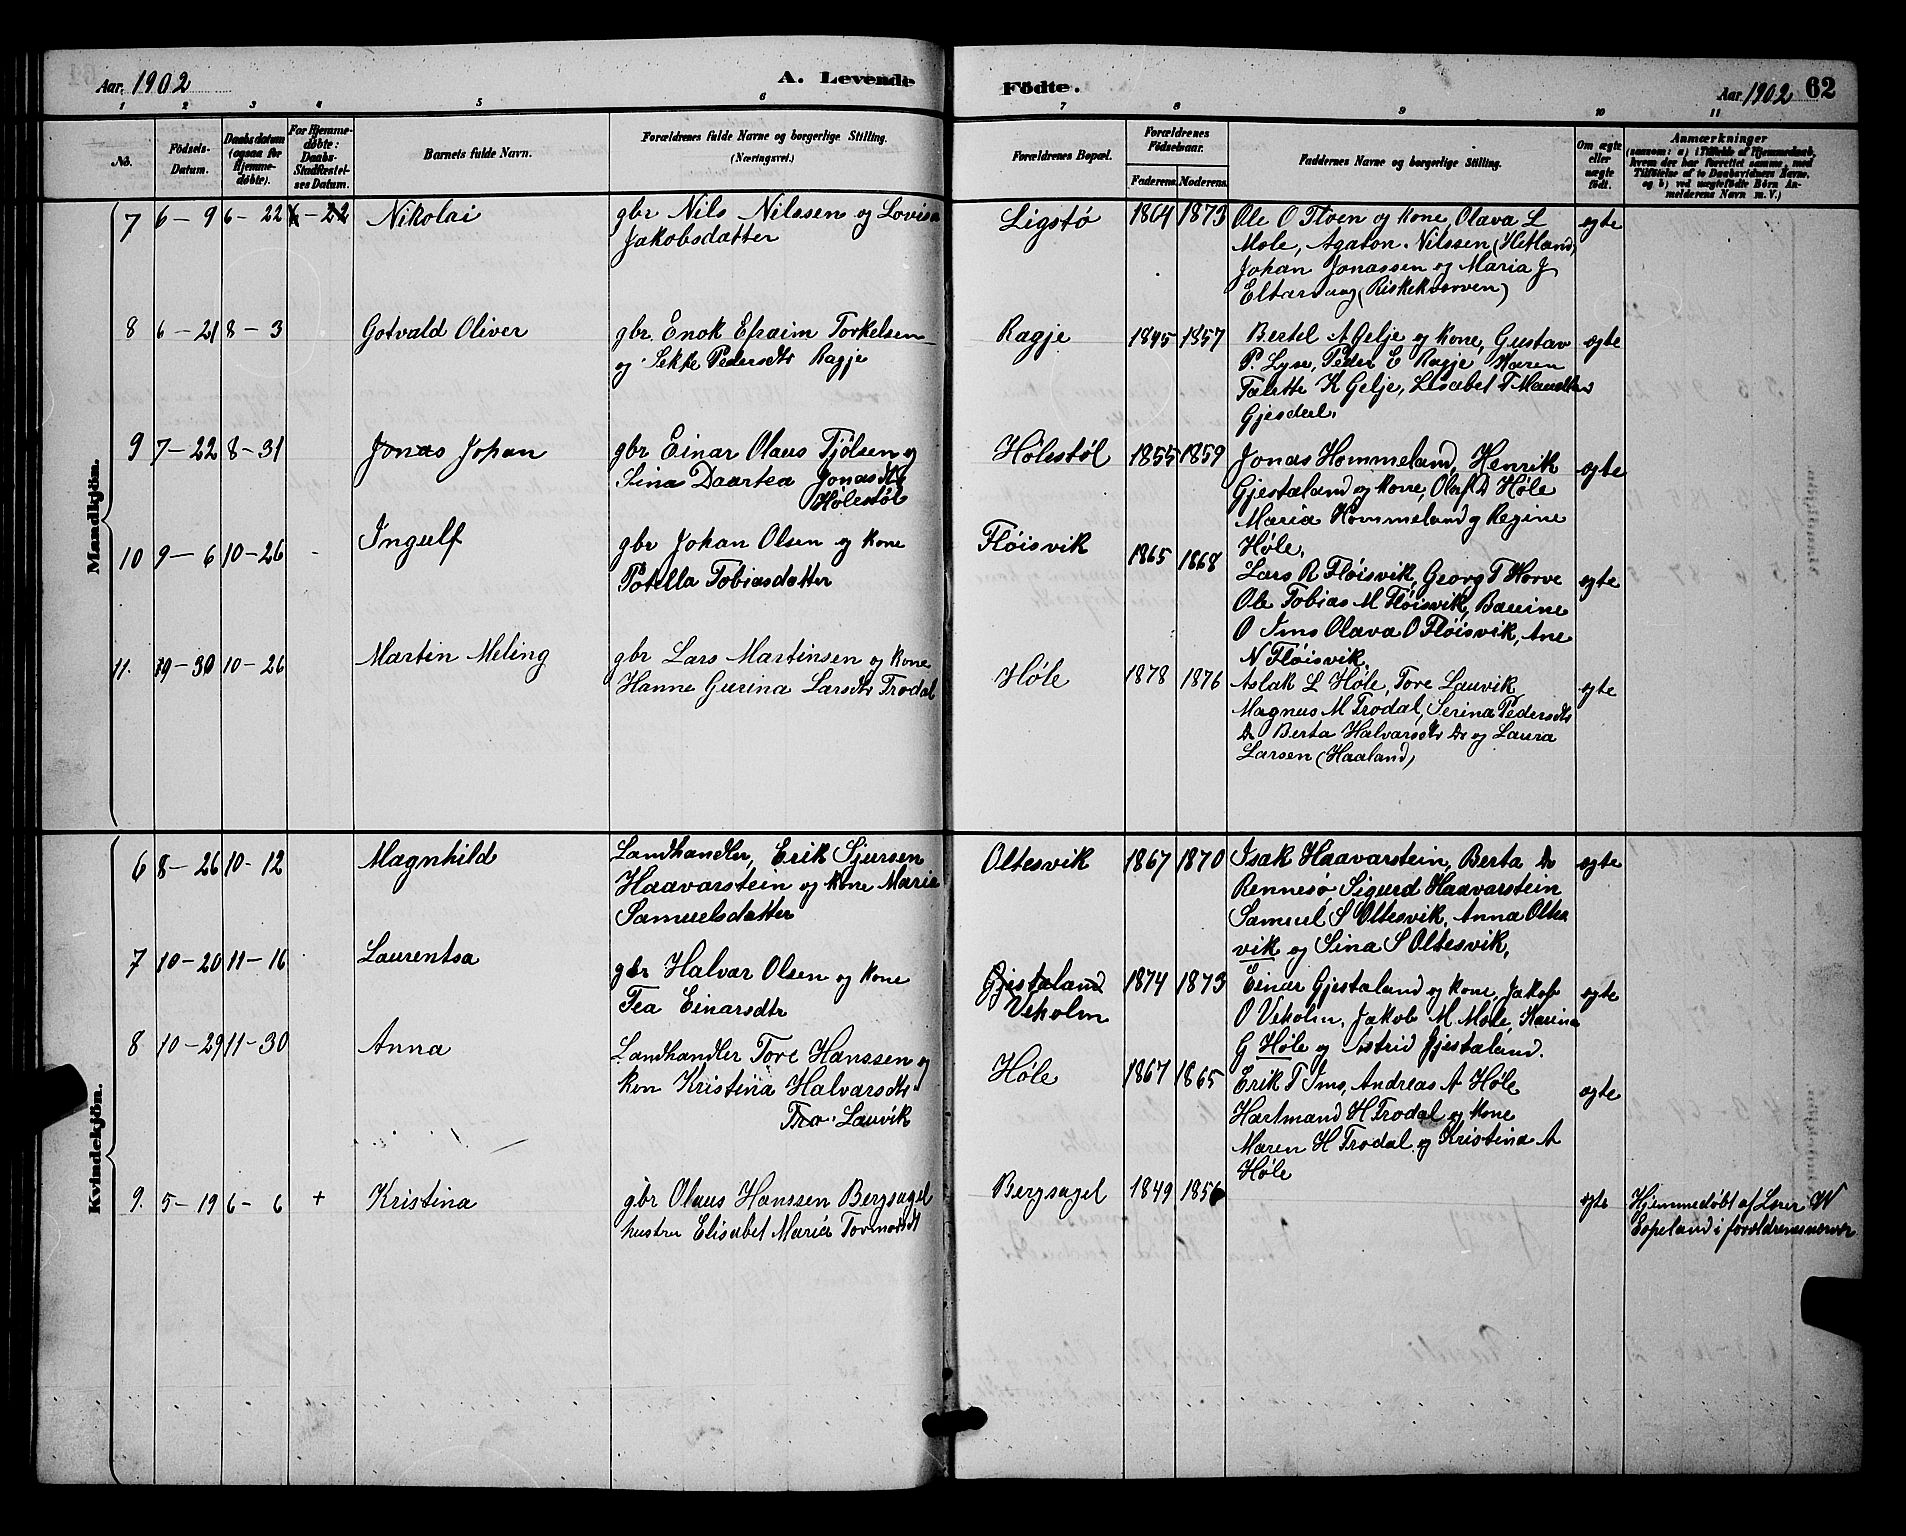 Aar. 1902
A. Levende
Födte.
Aar. 1902 62
1 2 3 4 5 6 7 8 9 10 11
No.
Födsels-Datum.
Daabsdatum (ogsaa for Hjemmedøbte).
For Hjemmedøbte: Daabs-Stadfæstelses Datum.
Barnets fulde Navn.
Forældrenes fulde Navne og borgerlige Stilling.
(Næringsvei.)
Forældrenes Bopæl.
Forældrenes Födselsaar.
Faderens. Moderens.
Faddernes Navne og borgerlige Stilling.
Om ægte eller uægte født.
Anmærkninger
(saasom: a) i Tilfælde af Hjemmedaab, hvem der har forrettet samme, med Tilföielse af to Daabsvidners Navne, og b) ved uægtefødte Börn Anmelderens Navn m. V.)
Mandkjön.
7 6-9 6-22 6-22 Nikolai gbr Nils Nilssen og Lovisa
Jakobsdatter
Ligstø 1864 1873 Ole O Floen og kone, Olava L
Mole, Agaton. Nilssen (Hetland)
Johan Jonassen og Maria J
Eltarvaag (Riskekværven)
ægte
8 6-21 8-3 Gotvald Oliver gbr. Enok Efraim Torkelsen
og Sekke Pedersdtr Ragje
Ragje 1845 1857 Bertel A Gelje og kone, Gustav
P. Lyse, Peder E Ragje Maren
Talette K Gelje, Lisabet T
Gjesdal.
ægte
9 7-22 8-31 Jonas Johan gbr Einar Olaus Tjølsen og
Sina Daartea Jonasdtr
Hølestøl
Hølestøl 1855 1859 Jonas Hommeland, Henrik
Gjestaland og kone, Olaf D Høle
Maria Hommeland og Regine
Høle.
ægte
10 9-6 10-26 - Ingulf gbr Johan Olsen og kone
Potella Tobiasdatter
Fløisvik 1865 1868 Lars R Fløisvik, Georg T Horve
Ole Tobias M Fløisvik, Bauine
O Ims Olava O Fløisvik, Ane
N Fløisvik.
ægte
11. 9-30 10-26 Martin Meling gbr Lars Martinsen og kone
Hanne Gurina Larsdtr Trodal
Høle 1878 1876 Aslak L Høle, Tore Lauvik
Magnus M Trodal, Serina Pedersdtr
Ds Berta Halvarsdtr Ds og Laura
Larsen (Haaland)
ægte
Kvindekjön.
6 8-26 10-12 Magnhild Landhandler, Erik Sjursen
Haavarstein og kone Maria
Samuelsdatter
Oltesvik 1867 1870 Isak Haavarstein, Berta Ds
Rennesø Sigurd Haavarstein
Samuel S Oltesvik, Anna Oltes
vik og Sina S Oltesvik,
ægte
7 10-20 11-16 Laurentsa gbr Halvar Olsen og kone
Tea Einarsdtr
Gjestaland
Veholm
1874 1873 Einar Gjestaland og kone, Jakob
O Veholm, Jakob M Mole, Karina
G Høle og Astrid Gjestaland.
ægte
8 10-29 11-30 Anna Landhandler Tore Hanssen og
kon Kristina Halvarsdtr
Tra Lauvik
Høle 1867 1865 Erik T Ims, Andreas A Høle
Hartmand H Trodal og kone
Maren H Trodal og Kristina A
Høle
ægte
9. 5-19 6-6 + Kristina gbr Olaus Hanssen Bergsagel
hustru Elisabet Maria Tormodsdt
Bergsagel 1849 1856
ægte Hjemmedøbt af Lærer W
Espeland i forældrenes nærvær